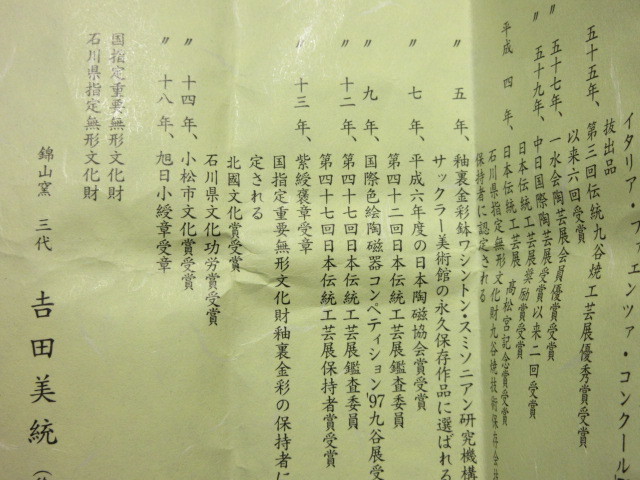 イタリア・ファエンツァ・コンクール
抜出品
五十五年、第三回伝統九谷焼工芸展優秀賞受賞
以来六回受賞
〃 五十七年、一水会陶芸展会員優賞受賞
〃 五十九年、中日国際陶芸展受賞以来二回受賞
日本伝統工芸展奨励賞受賞
平成 四 年、日本伝統工芸展 高松宮記念賞受賞
石川県指定無形文化財九谷焼技術保存会技
保持者に認定される
〃 五 年、釉裏金彩鉢ワシントン・スミソニアン研究機構
サックラー美術館の永久保存作品に選ばれる
〃 七 年、平成六年度の日本陶磁協会賞受賞
第四十二回日本伝統工芸展鑑査委員
〃 九 年、国際色絵陶磁器コンペティション'97九谷展受
〃 十二 年、第四十七回日本伝統工芸展鑑査委員
第四十七回日本伝統工芸展保持者賞受賞
〃 十三 年、紫綬褒章受章
国指定重要無形文化財釉裏金彩の保持者に
定される
北國文化賞受賞
石川県文化功労賞受賞
〃 十四年、小松市文化賞受賞
〃 十八年、旭日小綬章受章
国指定重要無形文化財
石川県指定無形文化財
錦山窯 三代 吉田美統